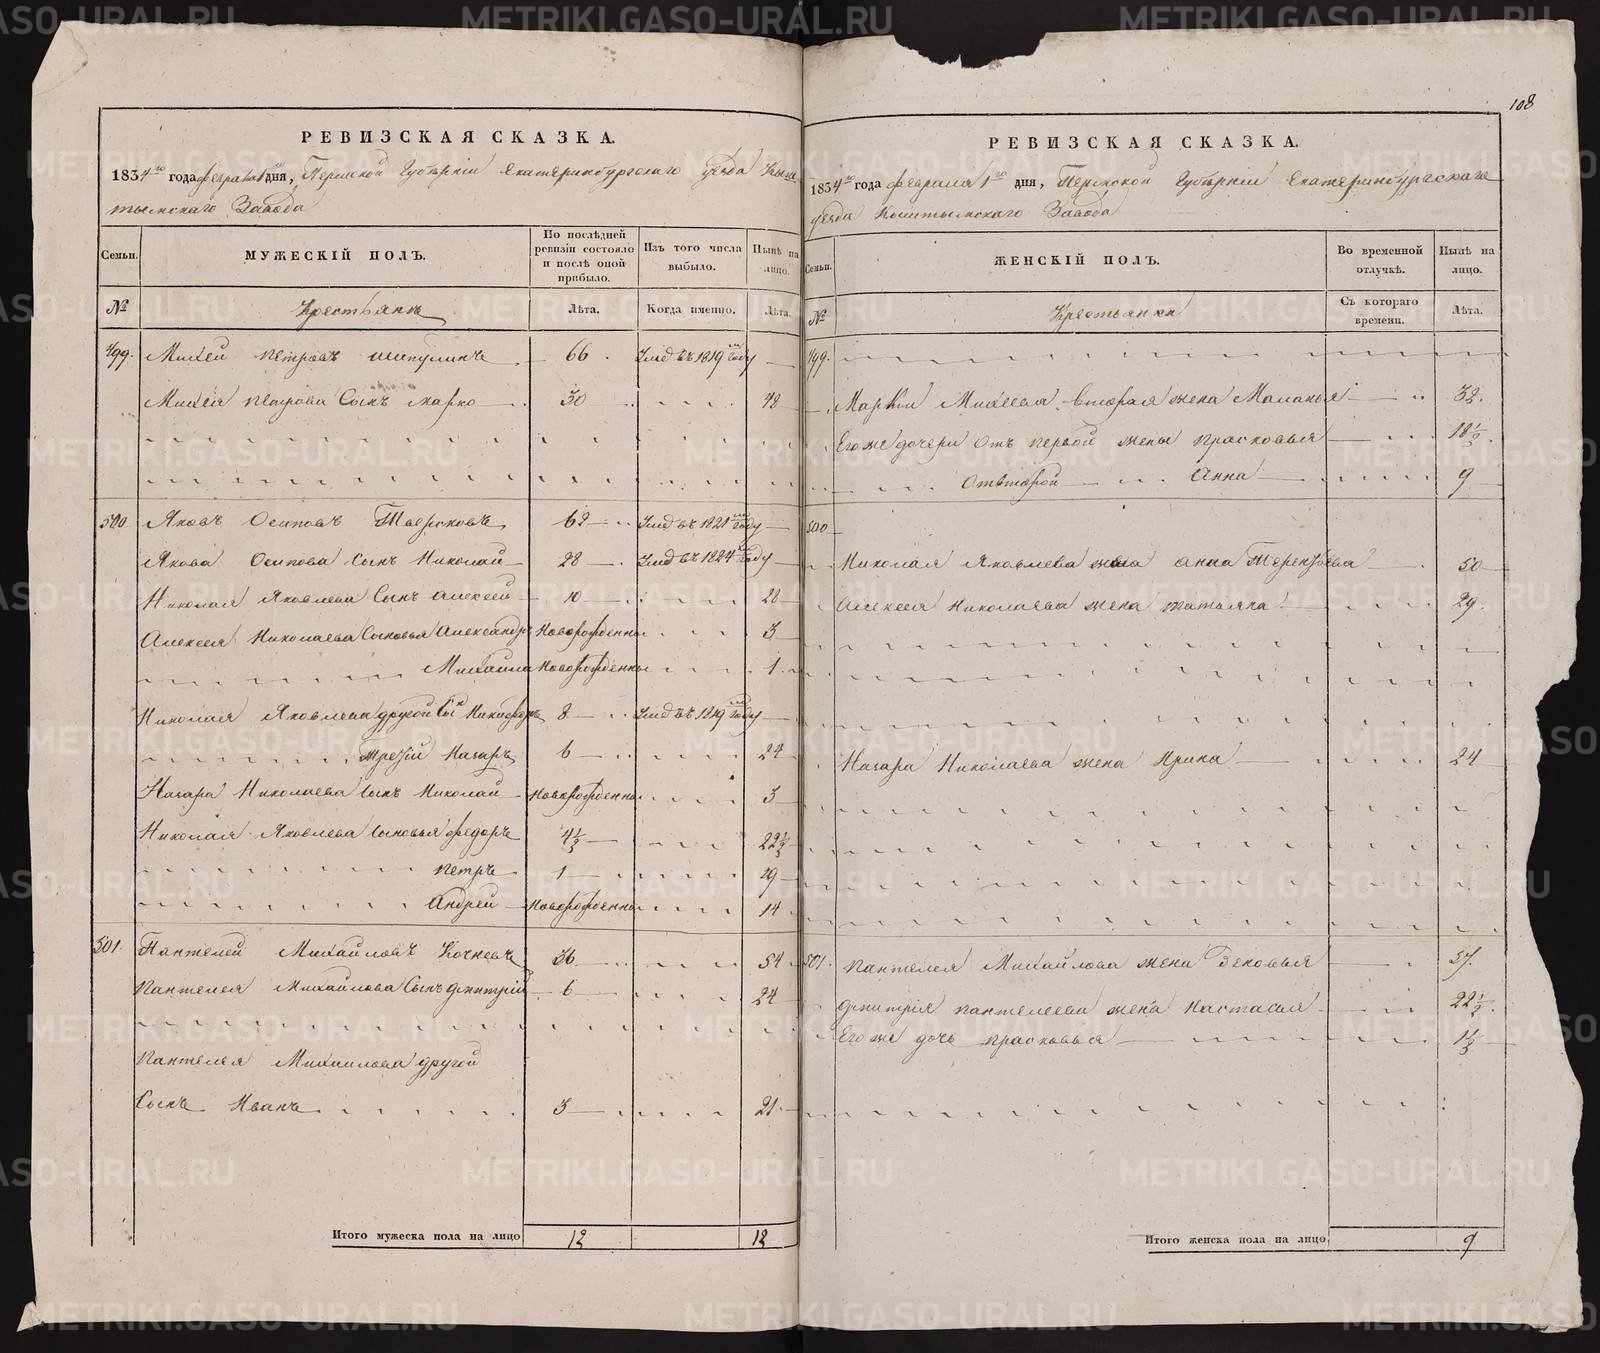 108
РЕВИЗСКАЯ СКАЗКА.
1834го года февраля 1го дня, Пермской Губернiи Екатеринбургского уезда Кыш
тымского Завода
Семьи.
МУЖЕСКIЙ ПОЛЪ.
По послѣдней ревизiи состояло и послѣ оной прибыло.
Изъ того числа выбыло.
Нынѣ на лицо.
№
Крестьянъ
Лѣта.
Когда именно.
Лѣта.
499. Михей Петровъ Шипулинъ 66 Умеръ въ 1819м году
Михея Петрова Сынъ Марко 30 48
500 Яковъ Осиповъ 62 Умеръ въ 1821м году
Якова Осипова Сынъ Николай 28 Умеръ въ 1824м году
Николая Яковлева Сынъ Алексей 10 28
Алексея Николаева Сыновья Александръ Новорожденны 3
Михайла Новорожденны 1
Николая Яковлева другой Сын Никифоръ 8 Умеръ въ 1819м году
Третiй Назаръ 6 24
Назара Николаева Сынъ Николай Новорожденны 3
Николая Яковлева Сыновья Федоръ 4½ 22½
Петръ 1 19
Андрей Новорожденны 14
501. Пантелей Михайловъ Кочневъ 36 54
Пантелея Михайлова Сынъ Дмитрiй 6 24
Пантелея Михайлова другой
Сынъ Иванъ 3 21
Итого мужеска пола на лицо 12 12
РЕВИЗСКАЯ СКАЗКА.
1834го года февраля 1го дня, Пермской Губернiи Екатеринбургскаго
уезда Кыштымскаго Завода
Семьи.
ЖЕНСКIЙ ПОЛЪ.
Во временной отлучкѣ.
Нынѣ на лицо.
№
Крестьянки
Съ котораго времени.
Лѣта.
499.
Марки Михеева вторая жена Маланья 38.
Его же дочери Отъ первой жены Прасковья 18½
От второй Анна 9
500
Николая Яковлева жена Анна Терентьева 50
Алексея Николаева жена Татьяна 29.
Назара Николаева жена Ирина 24
501. Пантелея Михайлова жена Зеновья 57.
Дмитрiя Пантелеева жена Настасья 22½
Его же дочь Прасковья 1½
Итого женска пола на лицо 9
METRIKI.GASO-URAL.RU